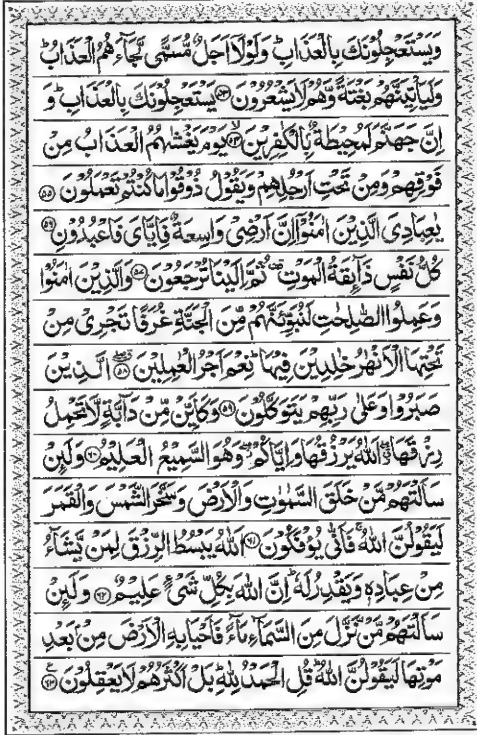 وَيَسْتَعْجِلُونَكَ بِالْعَذَابِ ؕ وَلَوْلَاۤ اَجَلٌ مُّسَمًّى لَّجَآءَهُمُ الْعَذَابُ ؕ
وَلَيَاْتِيَنَّهُمْ بَغْتَةً وَّهُمْ لَا يَشْعُرُوْنَ ﴿۵۳﴾ يَسْتَعْجِلُوْنَكَ بِالْعَذَابِ ؕ وَ
اِنَّ جَهَنَّمَ لَمُحِيْطَةٌۢ بِالْكٰفِرِيْنَ ﴿۵۴﴾ يَوْمَ يَغْشٰىهُمُ الْعَذَابُ مِنْ
فَوْقِهِمْ وَمِنْ تَحْتِ اَرْجُلِهِمْ وَيَقُوْلُ ذُوْقُوْا مَا كُنْتُمْ تَعْمَلُوْنَ ﴿۵۵﴾
يٰعِبَادِىَ الَّذِيْنَ اٰمَنُوْۤا اِنَّ اَرْضِىْ وَاسِعَةٌ فَاِيَّاىَ فَاعْبُدُوْنِ ﴿۵۶﴾
كُلُّ نَفْسٍ ذَآئِقَةُ الْمَوْتِ ثُمَّ اِلَيْنَا تُرْجَعُوْنَ ﴿۵۷﴾ وَالَّذِيْنَ اٰمَنُوْا
وَعَمِلُوا الصّٰلِحٰتِ لَنُبَوِّئَنَّهُمْ مِّنَ الْجَنَّةِ غُرَفًا تَجْرِىْ مِنْ
تَحْتِهَا الْاَنْهٰرُ خٰلِدِيْنَ فِيْهَا ؕ نِعْمَ اَجْرُ الْعٰمِلِيْنَ ﴿۵۸﴾ الَّذِيْنَ
صَبَرُوْا وَعَلٰى رَبِّهِمْ يَتَوَكَّلُوْنَ ﴿۵۹﴾ وَكَاَيِّنْ مِّنْ دَآبَّةٍ لَّا تَحْمِلُ
رِزْقَهَا اللّٰهُ يَرْزُقُهَا وَاِيَّاكُمْ وَهُوَ السَّمِيْعُ الْعَلِيْمُ ﴿۶۰﴾ وَلَئِنْ
سَاَلْتَهُمْ مَّنْ خَلَقَ السَّمٰوٰتِ وَالْاَرْضَ وَسَخَّرَ الشَّمْسَ وَالْقَمَرَ
لَيَقُوْلُنَّ اللّٰهُ ۚ فَاَنّٰى يُؤْفَكُوْنَ ﴿۶۱﴾ اَللّٰهُ يَبْسُطُ الرِّزْقَ لِمَنْ يَّشَآءُ
مِنْ عِبَادِهٖ وَيَقْدِرُ لَهٗ ؕ اِنَّ اللّٰهَ بِكُلِّ شَىْءٍ عَلِيْمٌ ﴿۶۲﴾ وَلَئِنْ
سَاَلْتَهُمْ مَّنْ نَّزَّلَ مِنَ السَّمَآءِ مَآءً فَاَحْيَا بِهِ الْاَرْضَ مِنْۢ بَعْدِ
مَوْتِهَا لَيَقُوْلُنَّ اللّٰهُ ؕ قُلِ الْحَمْدُ لِلّٰهِ ؕ بَلْ اَكْثَرُهُمْ لَا يَعْقِلُوْنَ ﴿۶۳﴾